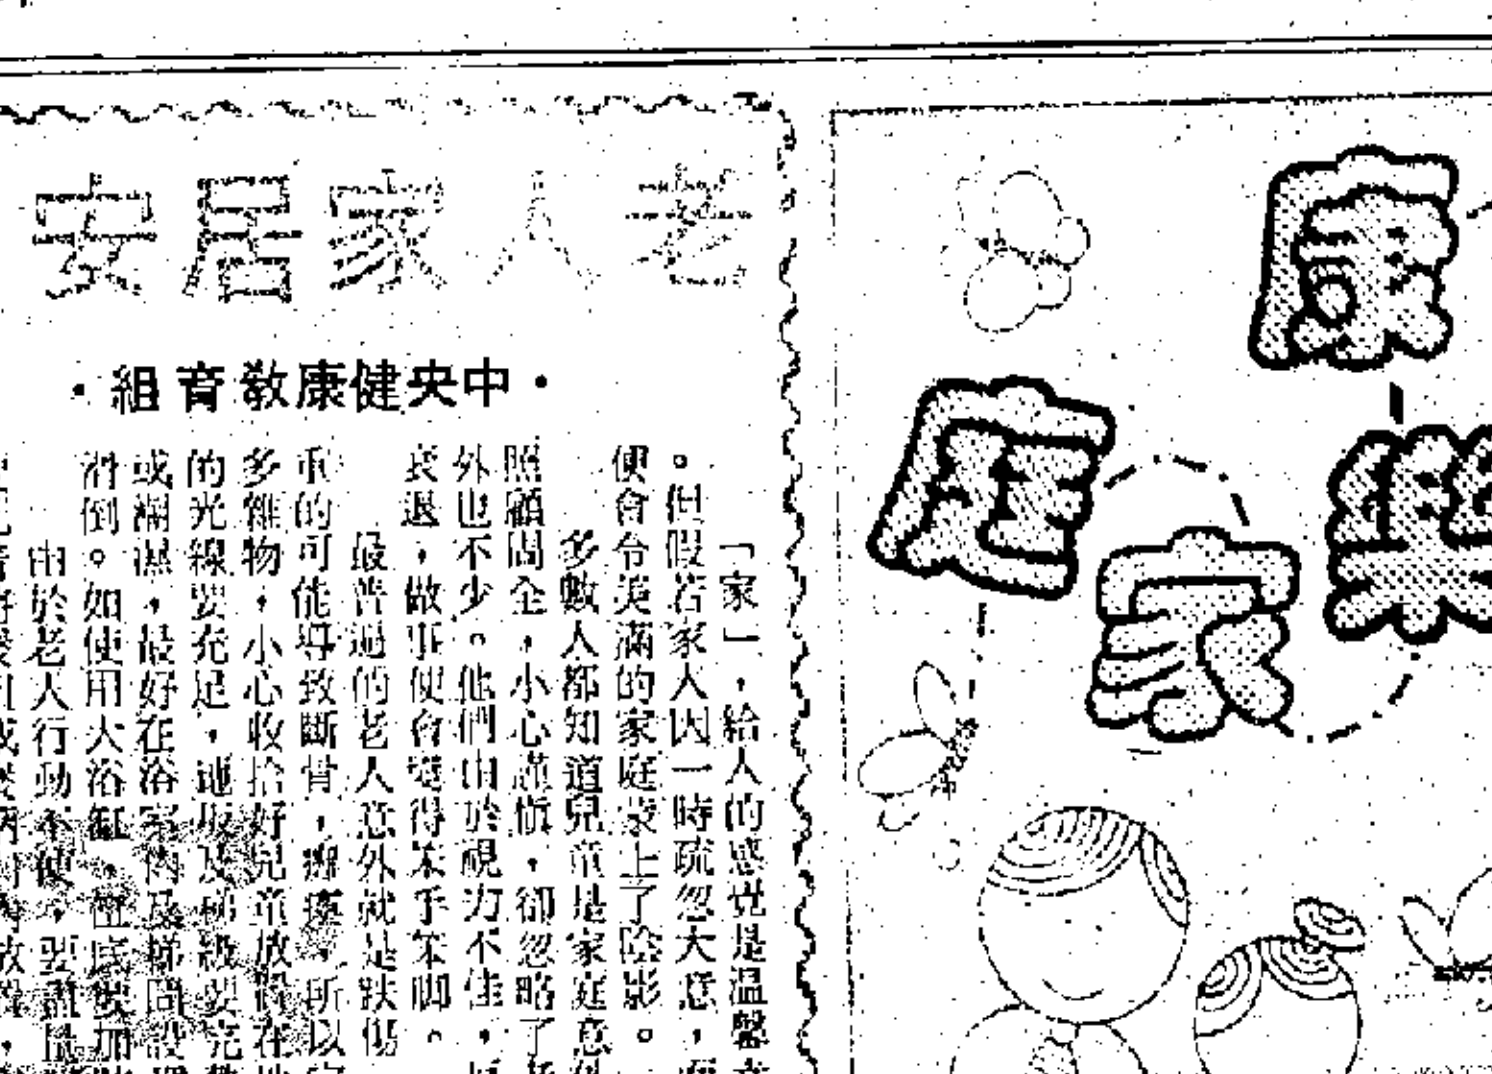 老人家居安
・中央健康教育組・
「家」,給人的感覺是温馨
。但假若家人因一時疏忽大意,
便會令美滿的家庭蒙上了陰影。
多數人都知道兒童是家庭意
照顧周全,小心謹慎,卻忽略了
外也不少。他們由於視力不佳,
衰退,做事便會變得笨手笨脚。
最普遍的老人意外就是跌傷
重的可能導致斷骨,癱瘓,所以
多雜物,小心收拾好兒童放置在
的光線要充足,地板及梯級要完
或潮濕,最好在浴室內及梯間設
滑倒。如使用大浴缸,缸底加
由於老人行動不便,要盡量
康樂家庭